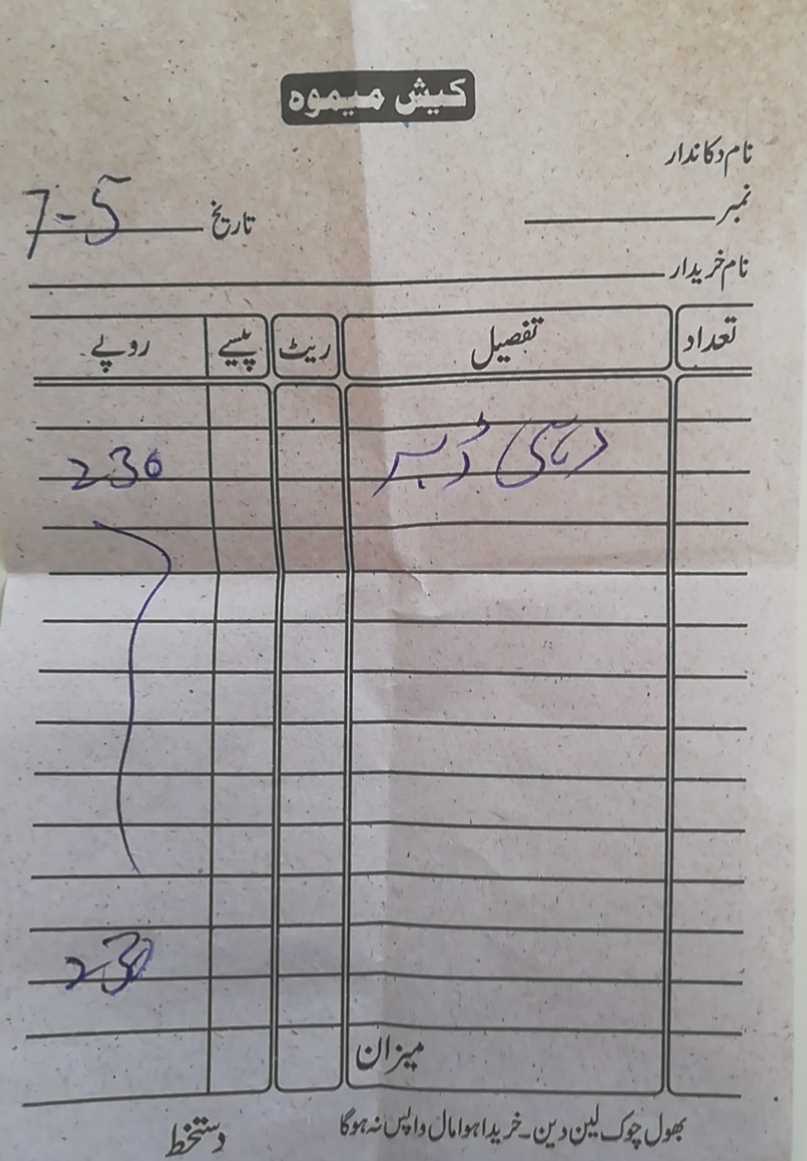 کیش میموہ
نام دکاندار
نمبر تاریخ 7-5
نام خریدار
تعداد تفصیل ریٹ پیسے روپے
دہی ڈبہ 230
230
میزان
بھول چوک لین دین۔ خریدا ہوا مال واپس نہ ہوگا
دستخط